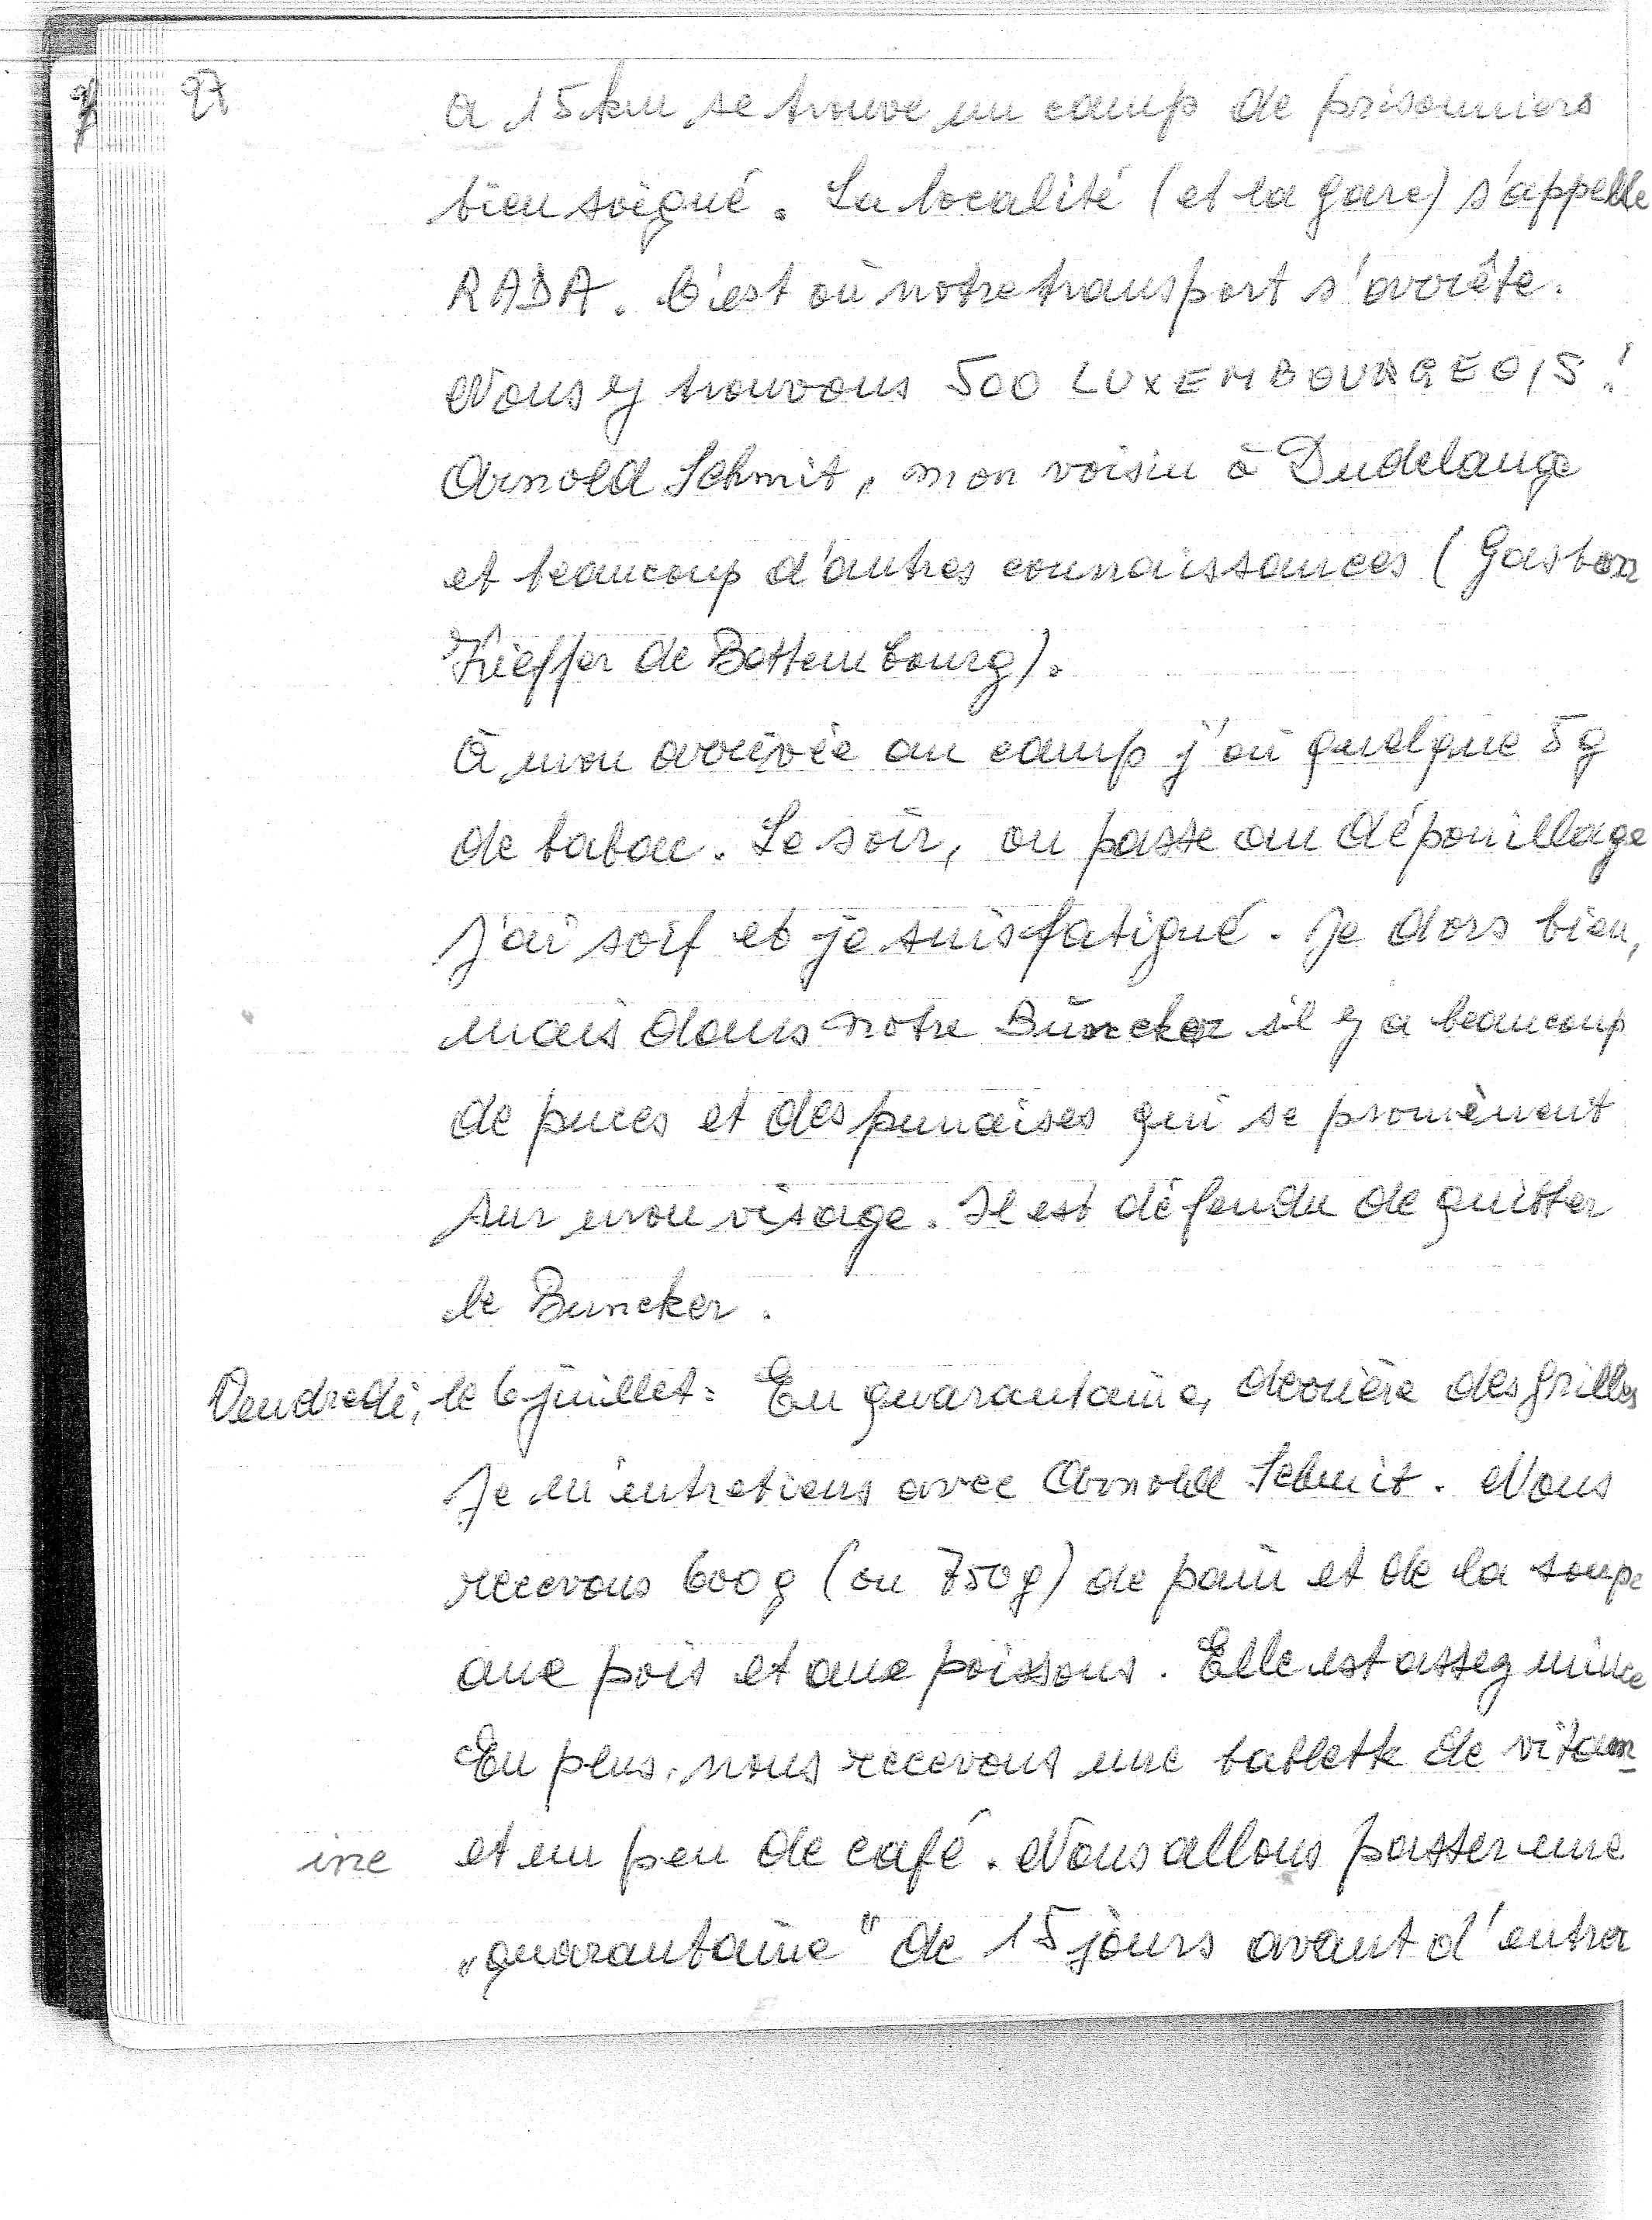 97
a 15 km se trouve un camp de prisonniers
bien soigné. La localité (et la gare) s'appelle
RADA. C'est où notre transport s'arrête.
Nous y trouvons 500 LUXEMBOURGEOIS!
Arnold Schmit, mon voisin à Dudelange
et beaucoup d'autres connaissances (Gaston
Kieffer de Bettembourg).
À mon arrivée au camp j'ai quelque 5g
de tabac. Le soir, on passe au dépouillage
J'ai soif et je suis fatigué. Je dors bien,
mais dans notre Buncker il y a beaucoup
de puces et des punaises qui se promènent
sur mon visage. Il est défendu de quitter
le Buncker.
Vendredi, le 6 juillet: En quarantaine, derrière des grilles
Je m'entretiens avec Arnold Schmit. Nous
recevons 600g (ou 750g) de pain et de la soupe
aux pois et aux poissons. Elle est assez mince
En plus, nous recevons une tablette de vitam-
ine et un peu de café. Nous allons passer une
„quarantaine" de 15 jours avant d'entrer